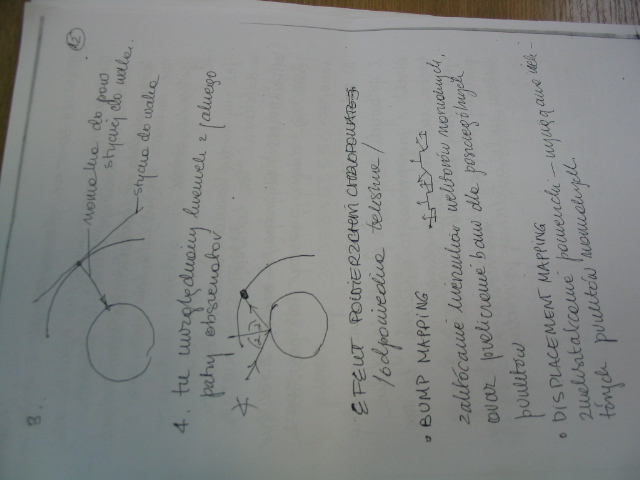 12
3.
normalna do pow
stycznej do walca.
styczna do walca
4. tu uwzględniamy kierunek z jakiego
patrzy obserwator
EFEKT POWIERZCHNI CHROPOWATEJ
/odpowiednia tekstura/
• BUMP MAPPING
zakłócanie kierunków wektorów normalnych,
oraz przeliczenie barw dla poszczególnych
punktów
• DISPLACEMENT MAPPING
zniekształcenie powierzchni -
tórnych punktów normalnych.